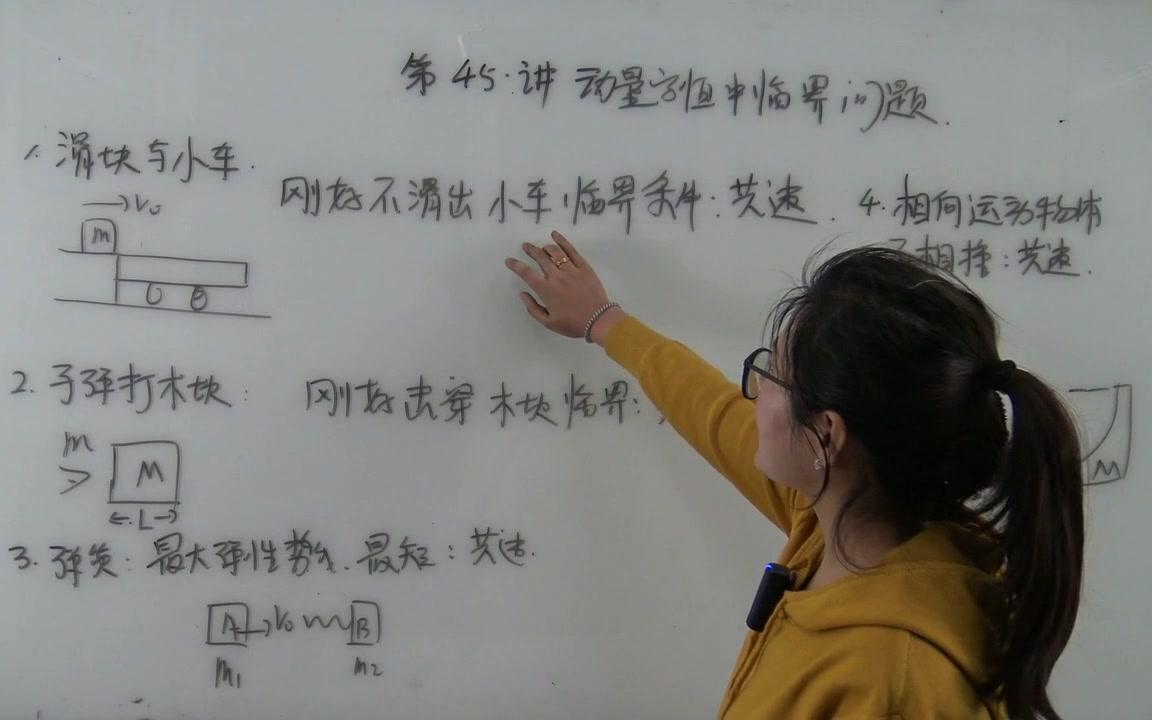 第45讲 动量守恒中临界问题.
1. 滑块与小车.
刚好不滑出小车临界条件:共速.
v₀
m
2. 子弹打木块:
刚好击穿木块临界:
m
M
L
3. 弹簧:最大弹性势能.最短:共速.
A v₀ B
m₁ m₂
4. 相向运动物体
不相撞:共速.
M